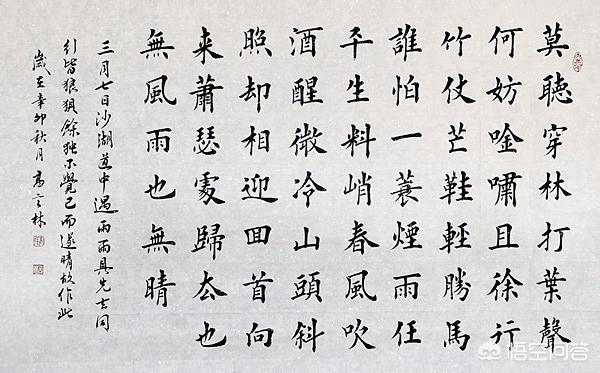 莫聽穿林打葉聲
何妨唫嘯且徐行
竹仗芒鞋輕勝馬
誰怕一蓑煙雨任
平生料峭春風吹
酒醒微冷山頭斜
照却相迎回首向
来蕭瑟處歸去也
無風雨也無晴
三月七日沙湖道中遇雨雨具先去同
行皆狼狽餘獨不覺已而遂晴故作此
歲在辛卯秋月高林
悟空问答